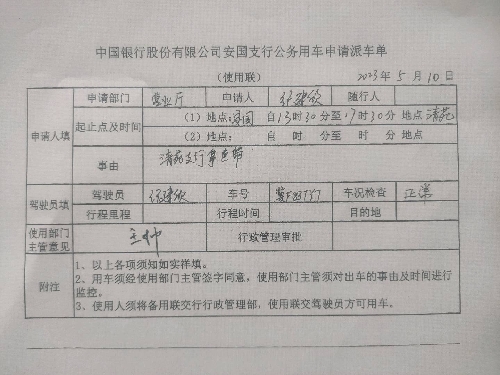 中国银行股份有限公司安国支行公务用车申请派车单
（使用联） 2023年5月10日
申请人填 申请部门 营业厅 申请人 随行人
起止点及时间 （1）地点:安国 自13时30分至17时30分 地点 清苑
（2）地点: 自 时 分至 时 分 地点
事由 清苑支行
驾驶员填 驾驶员 车号 车况检查 正常
行程里程 行程时间 目的地
使用部门主管意见 行政管理审批
附注 1、以上各项须知如实祥填。
2、用车须经使用部门主管签字同意，使用部门主管须对出车的事由及时间进行
监控。
3、使用人须将备用联交行行政管理部，使用联交驾驶员方可用车。